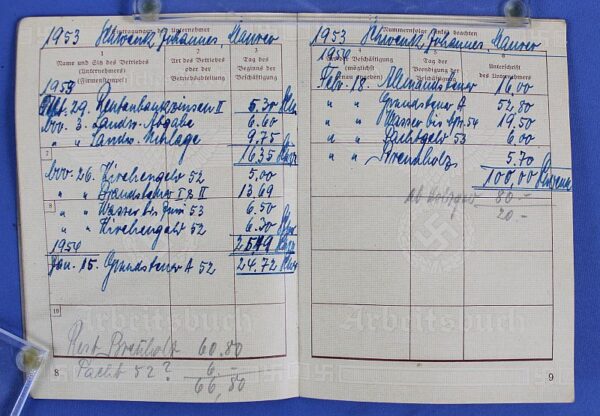 1953 Schwenk, Johannes, Maurer
Eintragungen der Unternehmer
1 2 3
Name und Sitz des Betriebes
(Unternehmers)
(Firmenstempel)
Art des Betriebes oder der
Betriebsabteilung
Tag des
Beginns der
Beschäftigung
1953
29. Rentenbankzinsen II 5.30
Nov. 3. Landw. Abgabe 6.60
" " Landw. Umlage 9.75
7
16.35
Nov. 26. Kirchengeld 52 5,00
" " Brandsteuer I & II 13.69
8
" " Wasser bis Juni 53 6.50
" " Kirchengeld 52 6.30
1954
Jan. 15. Grundsteuer A 52 24.72
10
Arbeitsbuch
Rest Brennholz 60.80
Pacht 52? 6.-
66,80
8
Nummernfolge beachten
1953 Schwenk, Johannes, Maurer
4 5 6
Art der Beschäftigung
(möglichst
genau angeben)
Tag der
Beendigung der
Beschäftigung
Unterschrift
des Unternehmers
1954
Febr. 18. 16,00
" " Grundsteuer A 52.80
" " Wasser bis Apr. 54 19,50
" " Pachtgeld 53 6.00
" " Brennholz 5.70
100,00
ab 80 -
20 -
Arbeitsbuch
9